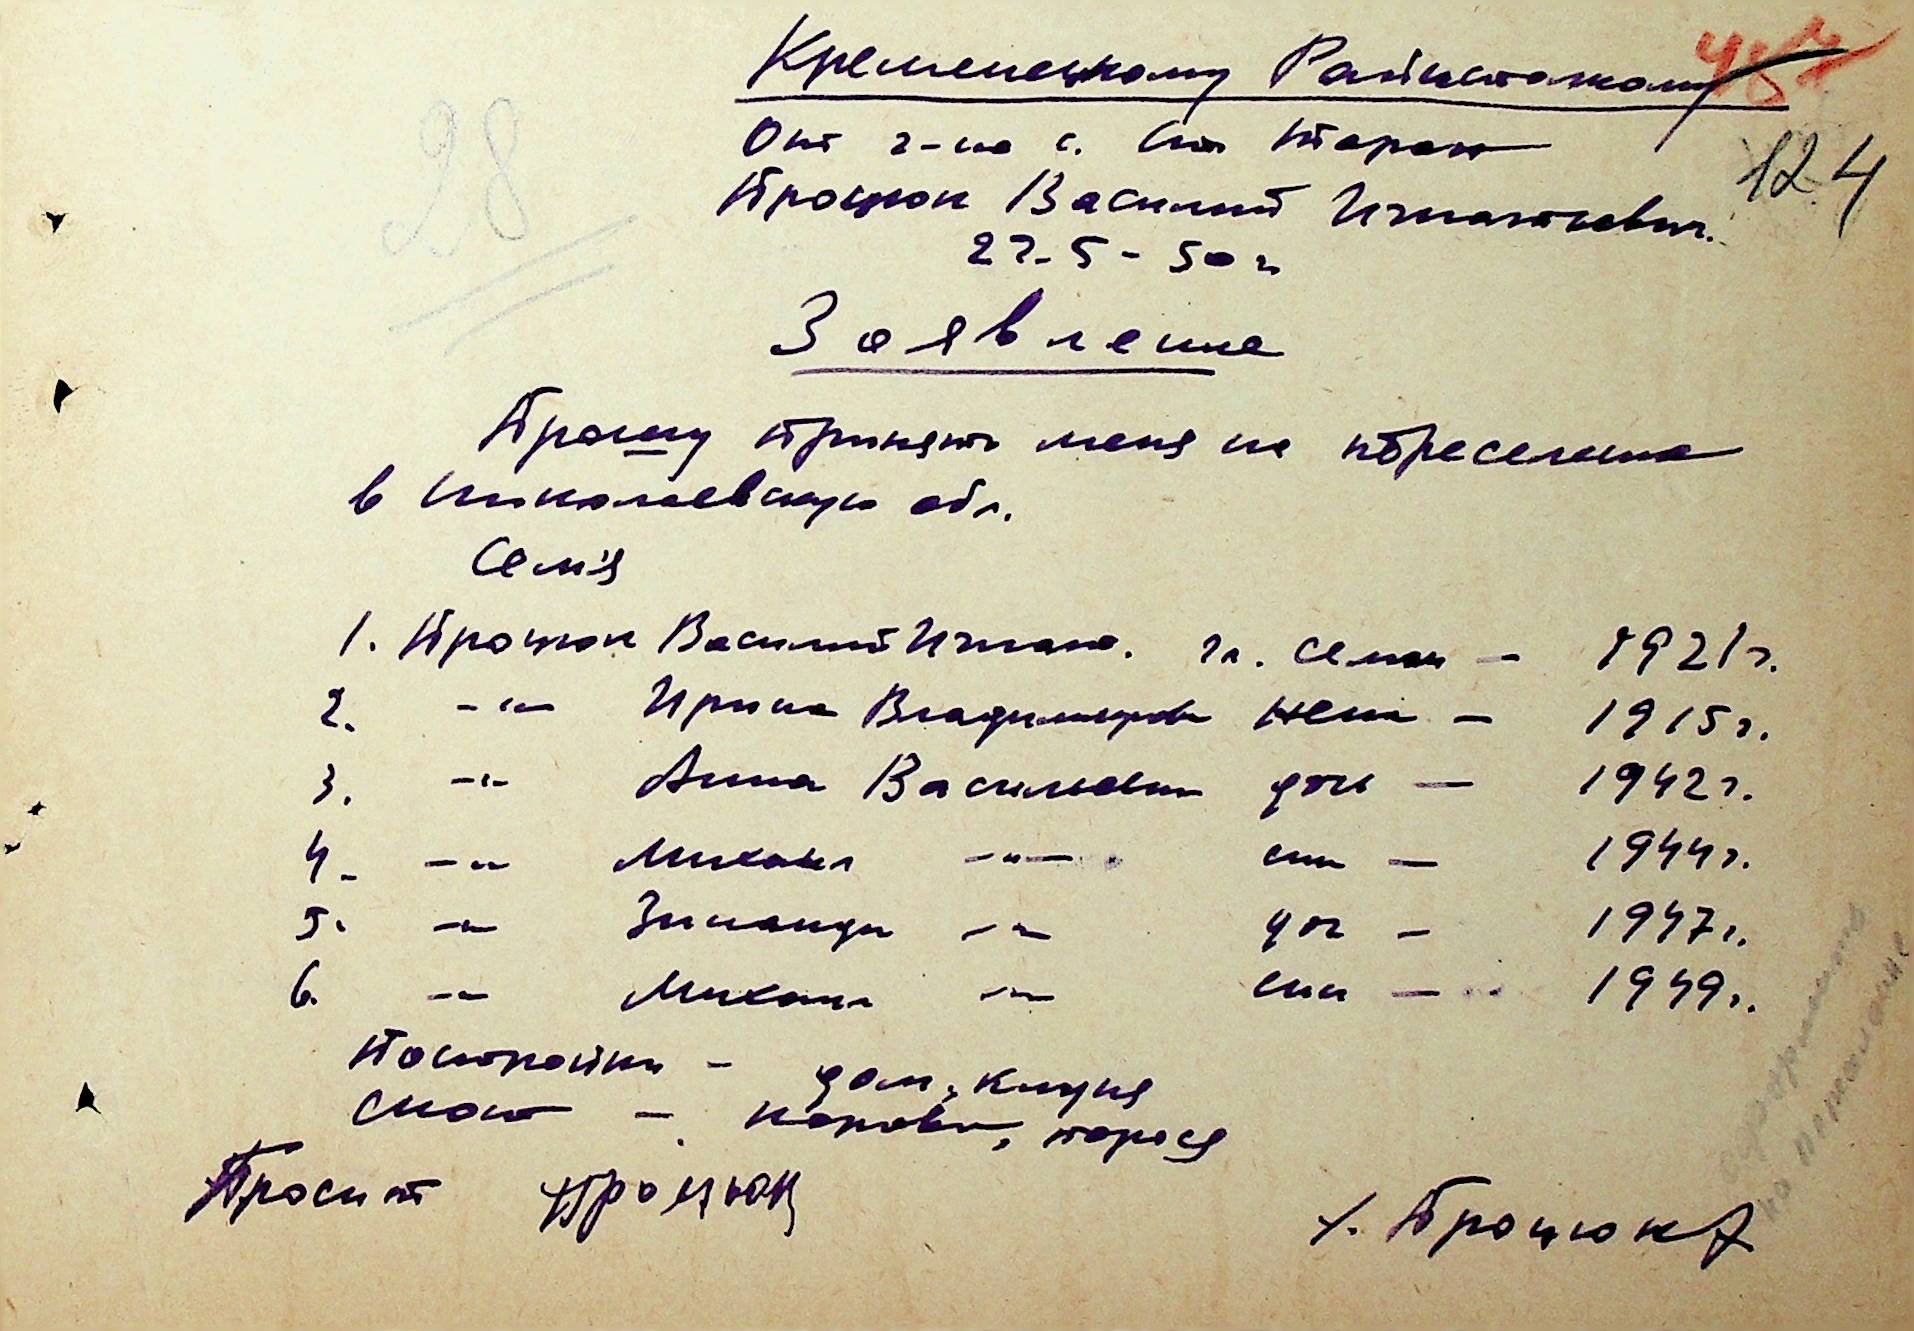 Кременецкому Райисполкому
124
28
От г-на с.
Процюк Василий Игнаткович.
27-5-50 г
Заявление
Прошу принять меня на переселение
в Николаевскую обл.
Сем'я
1. Процюк Василий Игнатк. гл. семьи — 1921 г.
2. -"- Ирина Владимиров жена — 1915 г.
3. -"- Анна Васильевн дочь — 1942 г.
4. -"- Михаил -"- син — 1944 г.
5. -"- Зинаида -"- доч — 1947 г.
6. -"- Михаил -"- син — 1949 г.
Постройки — дом, клуня
Скот — корова, порося
Просит Процюк
Процюк